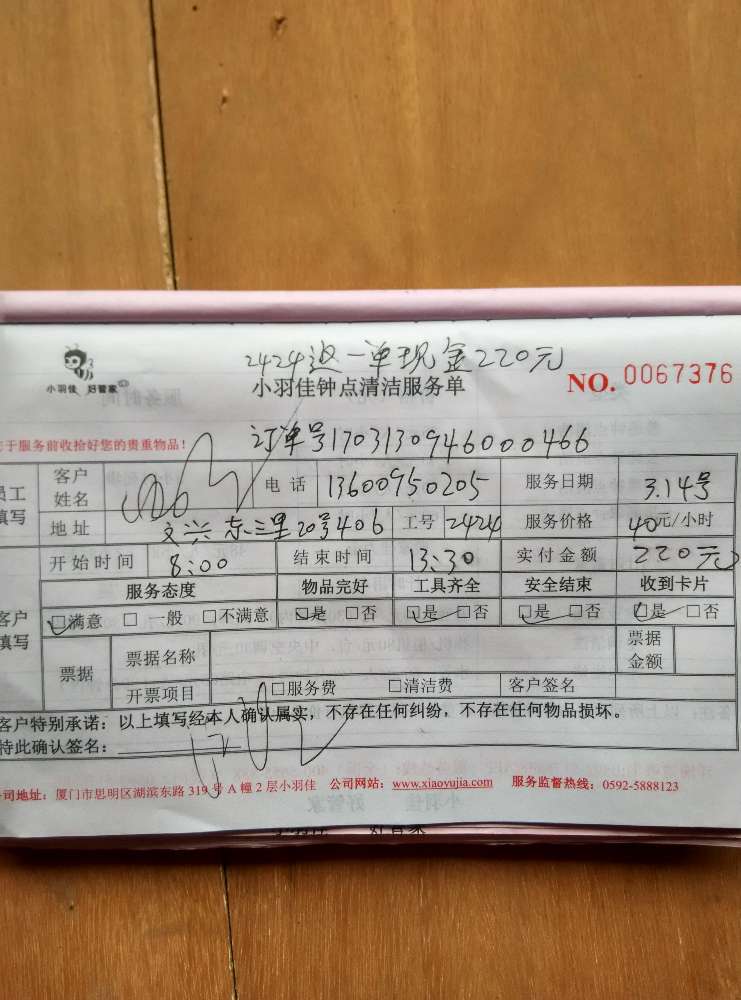 2424返一单现金220元
小羽佳 好管家
小羽佳钟点清洁服务单
NO. 0067376
于服务前收拾好您的贵重物品!
订单号1703130946000466
员工填写
客户姓名 电话 13600950205 服务日期 3.14号
地址 文兴东三里20号406 工号 2424 服务价格 40元/小时
开始时间 8:00 结束时间 13:30 实付金额 220元
客户填写
服务态度 物品完好 工具齐全 安全结束 收到卡片
☑满意 □一般 □不满意 ☑是 □否 ☑是 □否 ☑是 □否 ☑是 □否
票据 票据名称 票据金额
开票项目 □服务费 □清洁费 客户签名
客户特别承诺：以上填写经本人确认属实，不存在任何纠纷，不存在任何物品损坏。
特此确认签名：
司地址：厦门市思明区湖滨东路319号A幢2层小羽佳 公司网站：www.xiaoyujia.com 服务监督热线：0592-5888123